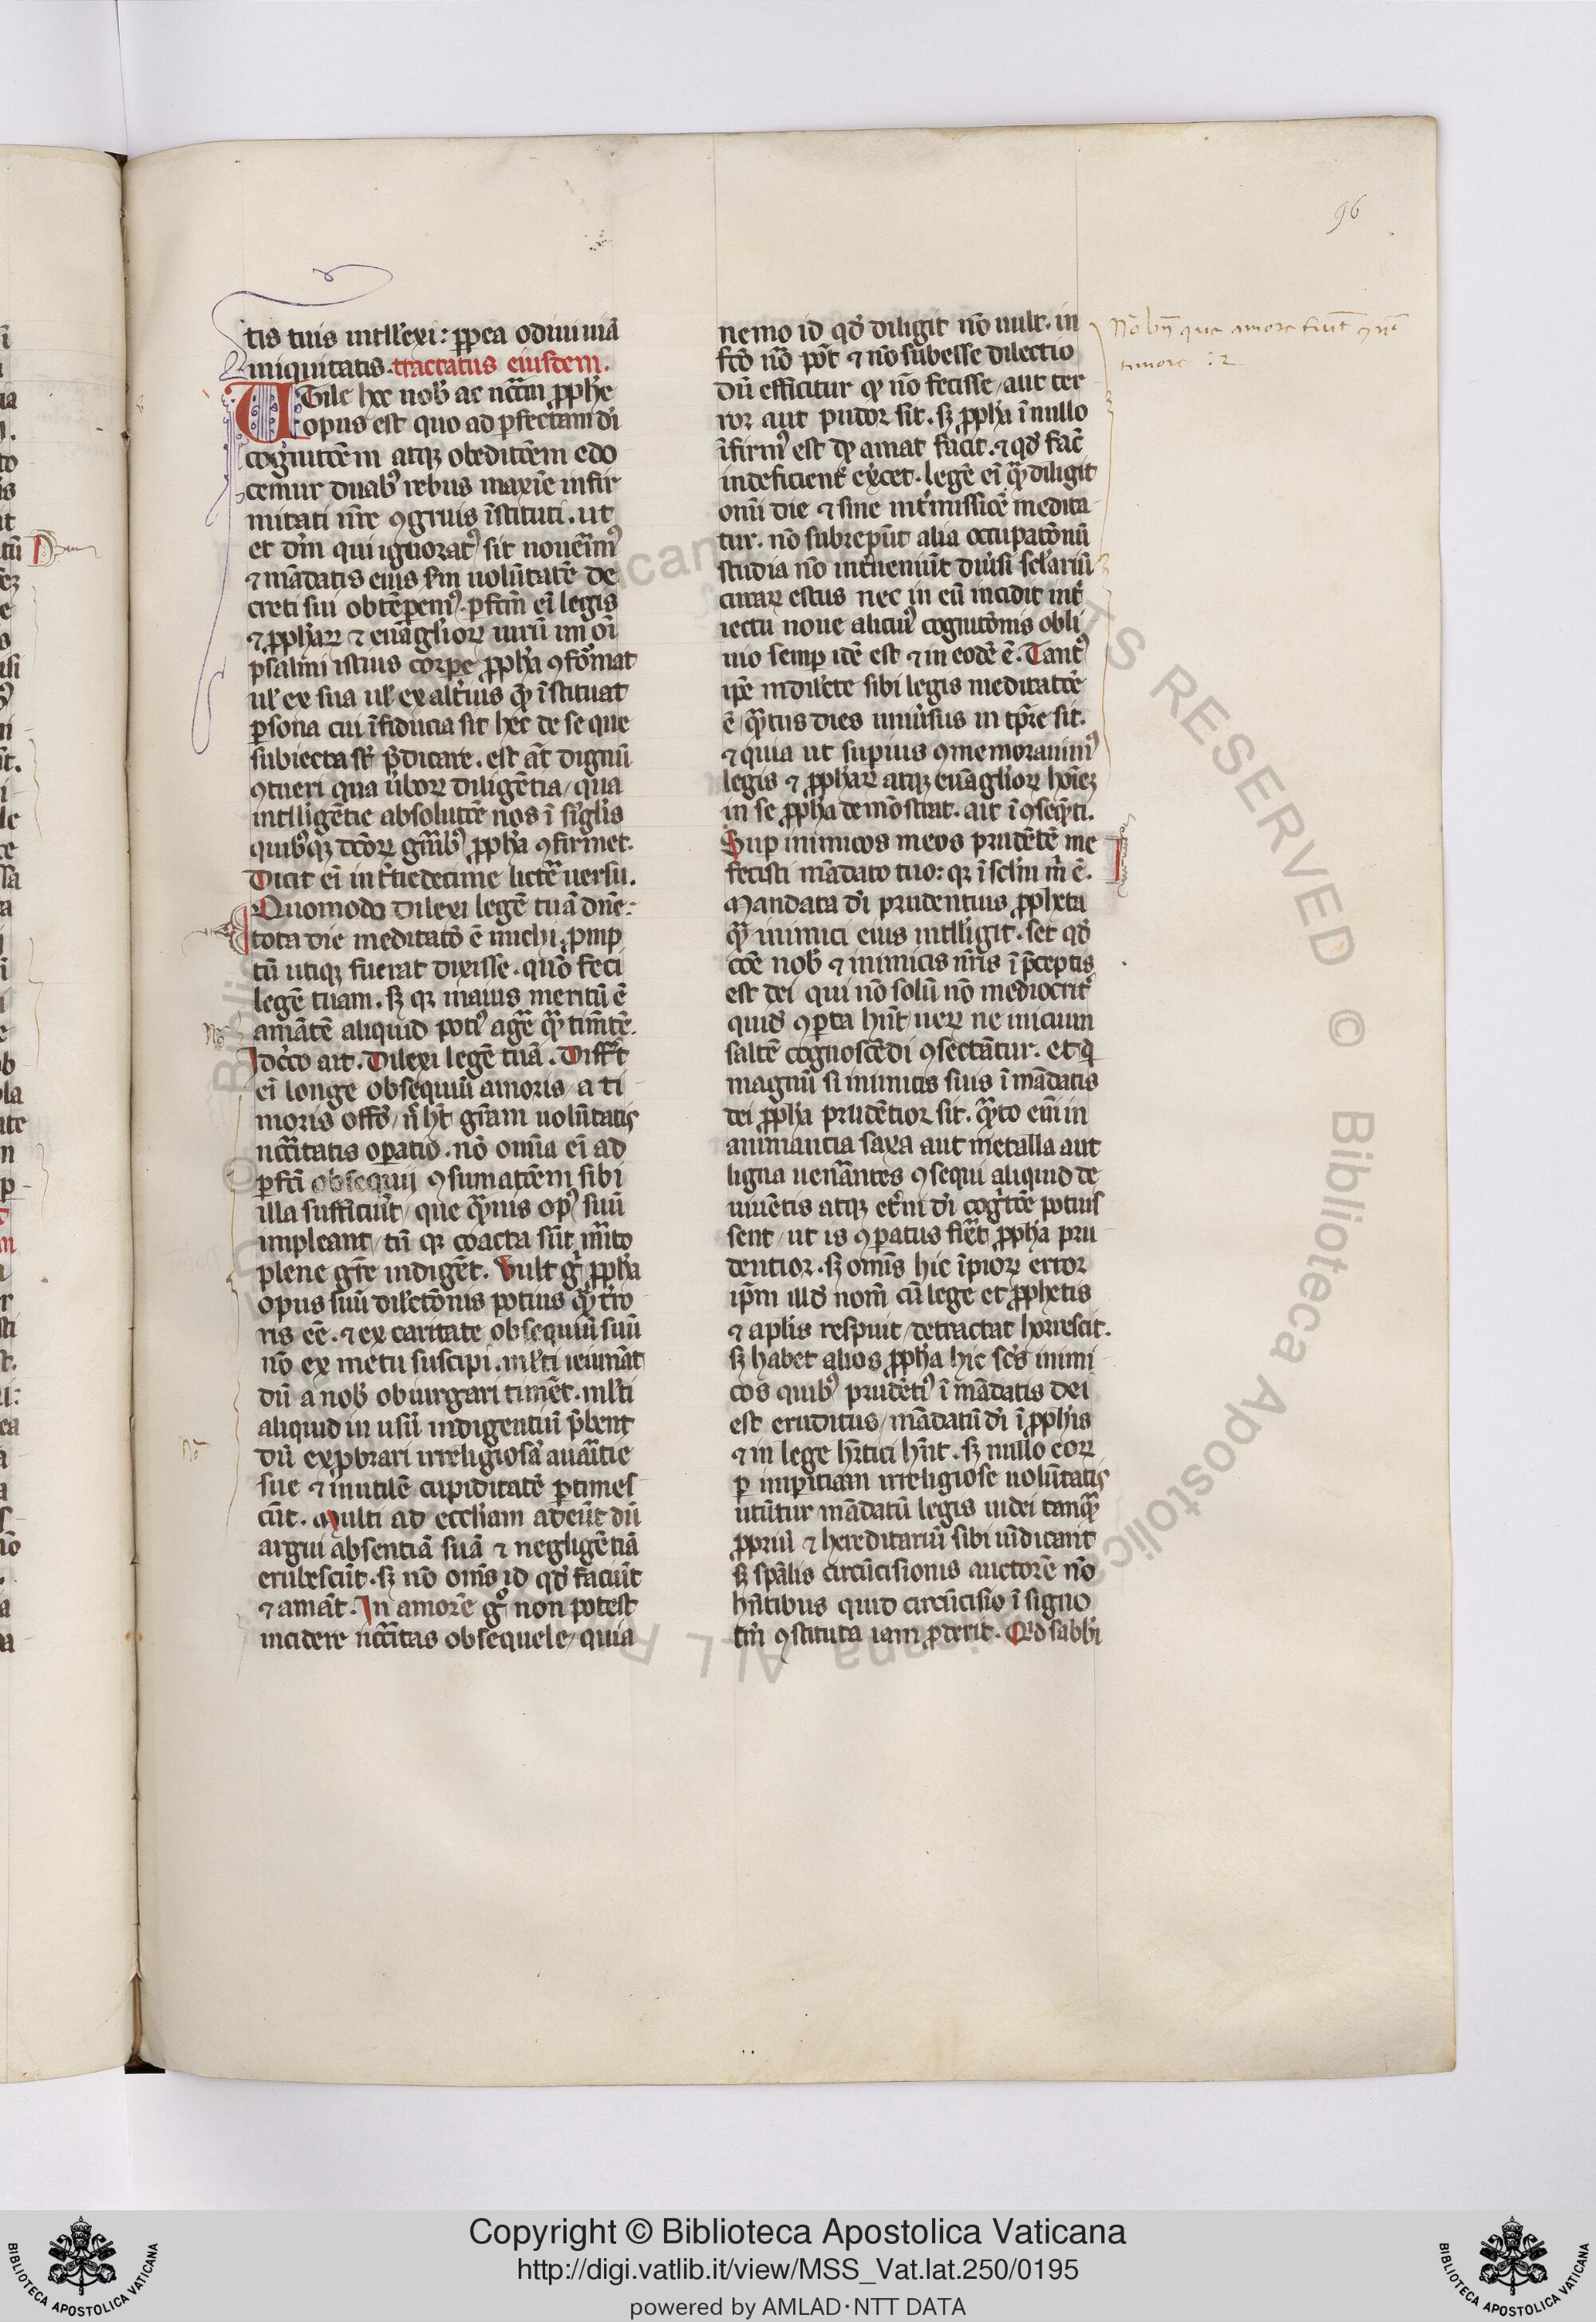 96
tis tuis intll'exi: ꝓpea odiui uiā
iniquitatis. tractatus eiusdem.
Utile hec nob' ac nc̄c̄iū ꝓph'e
opus est quo ad ꝑfectam d'i
cognitōem atqꝫ obeditōem edo
cemur duab' rebus maxīe infir
mitati nr̄e ꝯgruis īstituti. ut
et dm̄ qui ignorat' sit nouerīm'
⁊ mādatis eius scd'm uolūtatē de
creti sui obtēpem'. ꝑfctīn ei legis
⁊ ꝓph'arꝝ ⁊ euāgl'iorꝝ uirū in oi
psalmi istius corpe ꝓph'a ꝯformat
ul' ex sua ul' ex alt'ius qͣ īstituat
ꝑsona cui ī fiducia sit hec de se que
subiecta st' p̄dicare. est aūt dignū
ꝯtueri qua ūborꝝ diligētia / qua
intlligētie absolutōe nos ī sīgl'is
quib'qꝫ dc̄orꝝ gn̄ib' ꝓph'a ꝯfirmet.
Dicit ei in t'tiedecime litt'e uersu.
Quomodo dilexi legē tuā dn̄e:
tota die meditatō ē michi. ꝓmp
tū utiqꝫ fuerat dixisse. qn̄o feci
legē tuam. sꝫ qꝛ maius meritū ē
amātē aliquid poti' agē qͣ timētē.
Idc̄co ait. Dilexi legē tuā. Differt
ei longe obsequiū amoris / a ti
moris offō / n̄ h't gr̄am uolūtatis
nc̄c̄itatis oꝑatio. nō omīa ei ad
ꝑfcī obsequij ꝯsumatōem sibi
illa sufficiūt / que qͣuis op' suū
impleant / tn̄ qꝛ coacta sūt m'ito
plene gr̄e indigēt. Vult g' ꝓph'a
opus suū dil'ctōnis potius qͣ tīo
ris eē. ⁊ ex caritate obsequiū suū
nō ex metu suscipi. ml'ti ieiunāt
dū a nob' obiurgari timēt. ml'ti
aliquid in usū indigentiū p̄bent
dū exꝓbrari irreligiosā auaritie
sue ⁊ inutilē cupiditatē ꝑtimes
cūt. Multi ad eccl'iam adeūt dū
argui absentiā suā ⁊ negligētiā
erubescūt. sꝫ nō omīs id qd' faciūt
⁊ amāt. In amorē g° non potest
incidere nc̄c̄itas obsequele / quia
nemo id qd' diligit nō uult. in
fc̄o nō pōt ⁊ nō subesse dilectio
dū efficitur qͥ nō fecisse / aut ter
ror aut pudor sit. sꝫ ꝓph'a ī nullo
īfirm' est qͥ amat facit. ⁊ qd' facit
indeficient' ex'cet. legē ei quā diligit
omī die ⁊ sine int'missiōe medita
tur. nō subrepūt alia occupatōnū
studia nō int'ueniūt diu'si sel'ariū
curarꝝ estus nec in eū incidit int'
iectu noue alicui' cognitōnis obli
uio semꝑ idē est ⁊ in eodē ē. Tant'
ip̄e in dil'cte sibi legis meditatōe
ē / quātus dies uniu'sus in tp̄re sit.
⁊ quia ut supius ꝯmemorauim'
legis ⁊ ꝓph'arꝝ atqꝫ euāgl'iorꝝ hoīeꝫ
in se ꝓph'a demōstrat. ait ī ꝯseqn̄ti.
Sup inimicos meos prudētē me
fecisti mādato tuo: qꝛ ī sc'lm m' ē.
Mandata d'i prudentius ꝓpheta
qͣ inimici eius intll'igit. set qd'
cōe nob' ⁊ inimicis nr̄is ī p̄ceptis
est dei qui nō solū nō mediocrit'
quid' ꝯꝑta hn̄t / uerꝝ ne inicium
saltē cognoscēdi ꝯsectātur. et qͥ
magnū si inimicis suis ī mādatis
dei ꝓph'a prudētior sit. qͣto eni in
animantia saxa aut metalla aut
ligna uenātes ꝯsequi aliquid de
uiuētis atqꝫ et'ni d'i cog'tōe potuis
sent / ut is ꝯꝑatus fiet ꝓph'a pru
dentior. sꝫ omīs hic īpiorꝝ error
ip̄m illd' nom̄ cū lege et ꝓphetis
⁊ aplis respuit / detractat horrescit.
sꝫ habet alios ꝓph'a hic sc's inimi
cos quib' prudēti' ī mādatis dei
est eruditus / mādatū d'i ī ꝓph'is
⁊ in lege h'etici hn̄t. sꝫ nullo eorꝝ
ꝑ imꝑitiam irreligiose uolūtatis
utūtur mādatū legis iudei tanqͣ
ꝓpriū ⁊ hereditariū sibi uīdicant
sꝫ sp̄alis circūcisionis auctorē nō
hn̄tibus quid circūcisio ī signo
tm̄ ꝯstituta iam ꝓderit. Qd' sabb'i
Nō bn̄ que amore fiūt ꝯ nō
timore
Nō
Nō
Copyright © Biblioteca Apostolica Vaticana
http://digi.vatlib.it/view/MSS_Vat.lat.250/0195
powered by AMLAD·NTT DATA
BIBLIOTECA APOSTOLICA VATICANA
BIBLIOTECA APOSTOLICA VATICANA